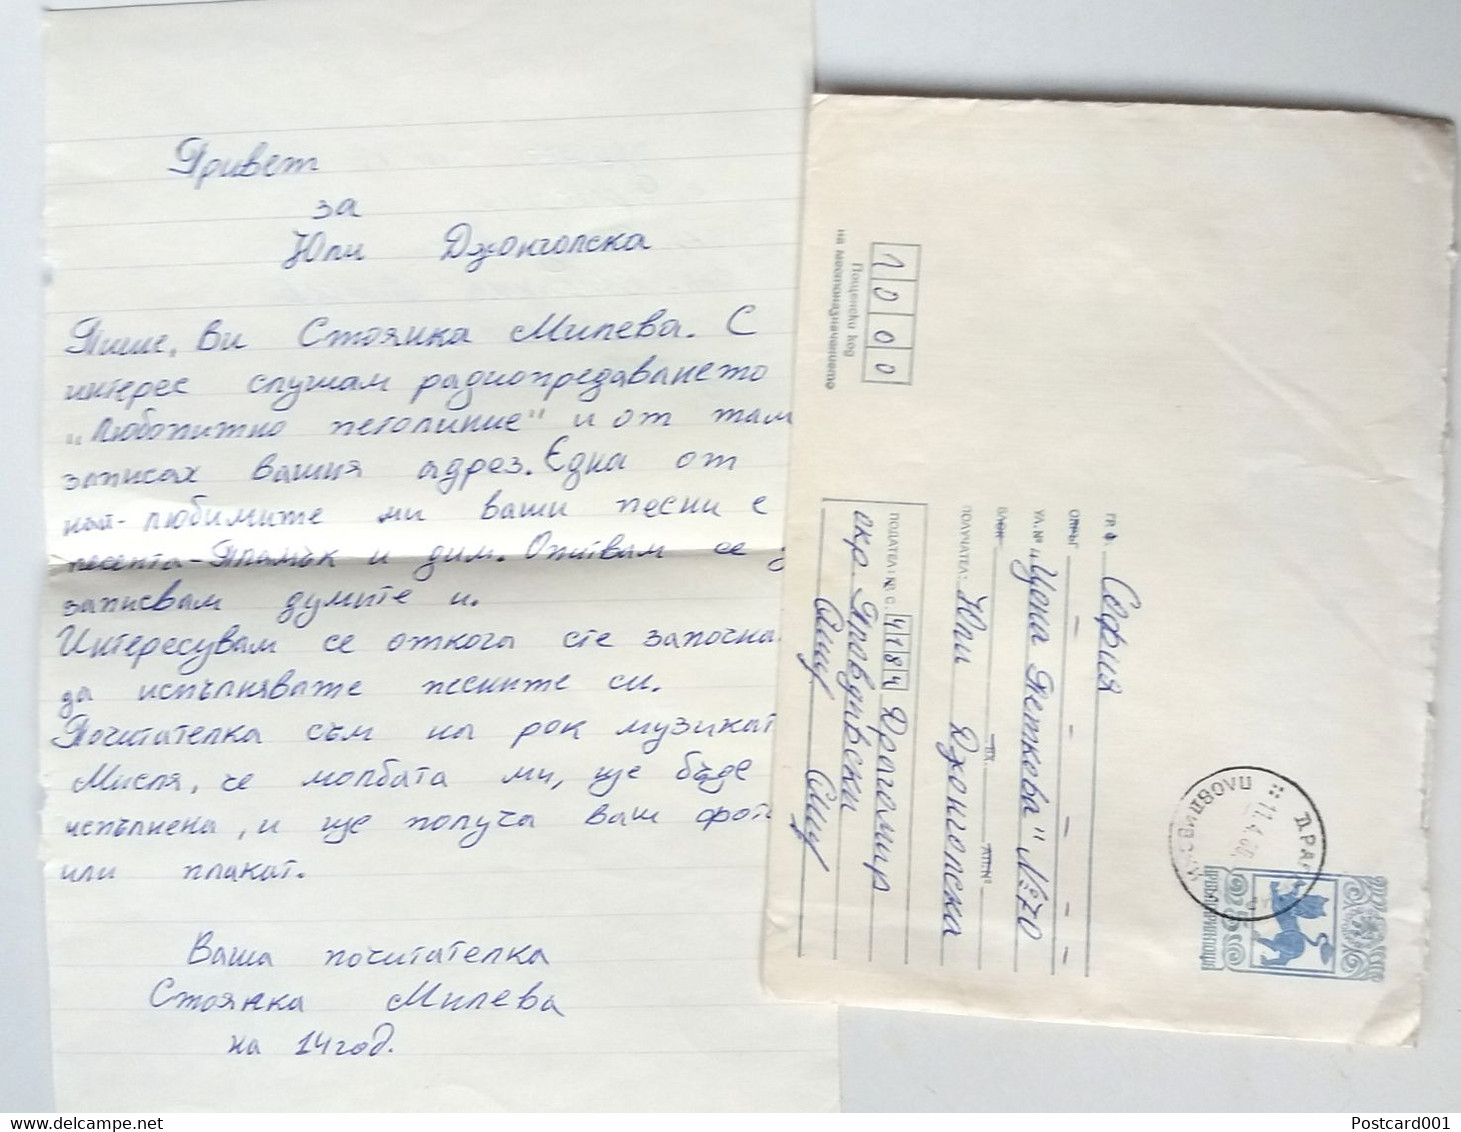 Привет
за
Юли Джонгопска
Пише, Ви Стоянка Милева. С
интерес слушам радиопредаването
„Любопитно петолиние" и от там
записах вашия адрез. Една от
най-любимите ми ваши песни е
песента - Пламък и дим. Опитвам се
записвам думите и.
Интересувам се откога сте започна
да испълнявате песните си.
Почитателка съм на рок музикат
Мисля, че молбата ми, ще бъде
испълнена, и ще получа ваш фото
или плакат.
Ваша почитателка
Стоянка Милева
на 14 год.
1000
Пощенски код
на местоназначението
гр. София
ОКРЪГ
УЛ. № „Цона Петкова" №70
БЛОК ВХ. АП. №
ПОЛУЧАТЕЛ: Юли Джонгопска
ПОДАТЕЛ: 4184 Драгомир
окр. Пловдивски
11.4.
25
Postcard001
delcampe.net